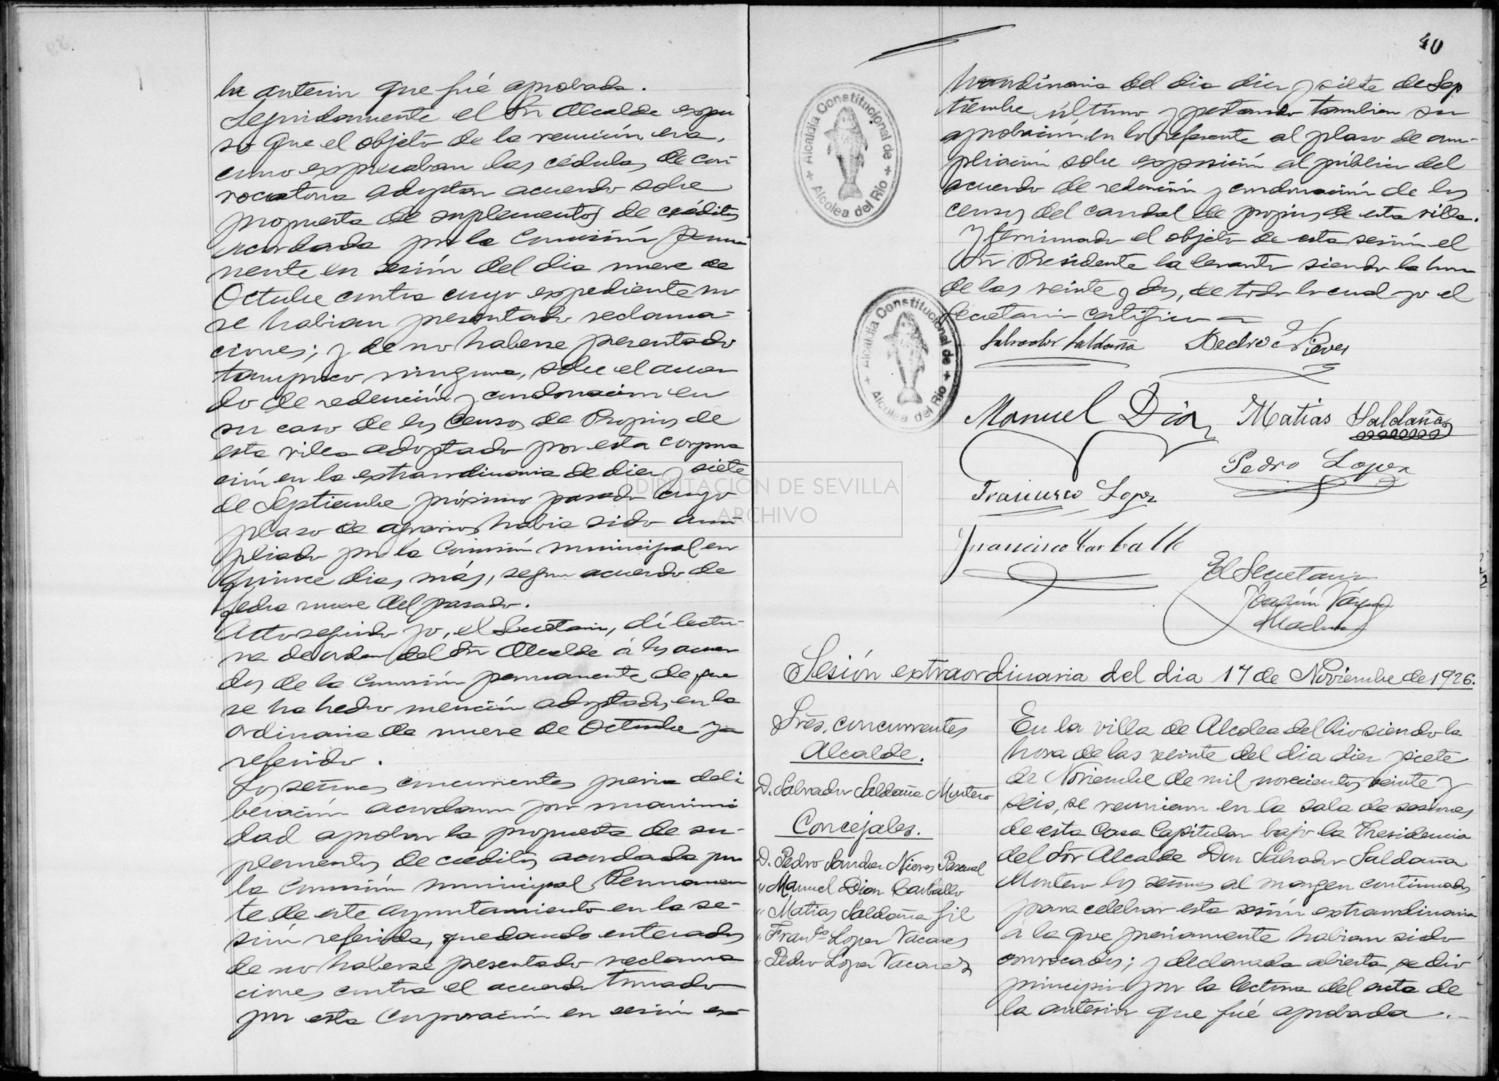 la anterior que fué aprobada.
Seguidamente el Sr Alcalde expu
so que el objeto de la reunión era,
como expresaban las cédulas de con
vocatoria adoptar acuerdo sobre
propuesta de suplementos de créditos
acordada por la Comisión perma
nente en sesión del dia nueve de
Octubre contra cuyo expediente no
se habian presentado reclama-
ciones; y de no haberse presentado
tampoco ninguna, sobre el acuer
do de redención y condonación en
su caso de los Censos de Propios de
esta villa adoptado por esta corpora
ción en la extraordinaria de diez y siete
de Septiembre próximo pasado cuyo
plazo de había sido am
pliado por la Comisión municipal en
quince dias más, segun acuerdo de
fecha nueve del pasado.
Acto seguido yo, el Secretario, dí lectu-
ra de orden del Sr Alcalde á los acuer
dos de la Comisión permanente de que
se ha hecho mención adoptados en la
ordinaria de nueve de Octubre ya
referido.
Los señores concurrentes previa deli
beración acordaron por unanimi
dad aprobar la propuesta de su-
plementos de créditos acordada por
la Comisión municipal Permanen
te de este Ayuntamiento en la se-
sión referida, quedando enterados
de no haberse presentado reclama
ciones contra el acuerdo tomado
por esta Corporación en sesión ex-
40
traordinaria del dia diez y siete de Sep
tiembre último y prestando tambien su
aprobación en lo referente al plazo de am-
pliación sobre exposición al público del
acuerdo de redención y condonación de los
censos del caudal de propios de esta villa.
Y terminado el objeto de esta sesión el
Sr Presidente la levantó siendo la hora
de las veinte y dos, de todo lo cual yo el
Secretario certifico =
Salvador Saldaña Pedro Nieves
Manuel Dian Matias Saldaña
Pedro Lopez
Francisco Lopez
Francisco Carballo
El Secretario
Joaquín
Alcaldía Constitucional de
Alcolea del Rio
Alcaldía Constitucional de
Alcolea del Rio
DIPUTACIÓN DE SEVILLA
ARCHIVO
Sesión extraordinaria del dia 17 de Noviembre de 1926.
Sres. concurrentes
Alcalde.
D. Salvador Saldaña Montero
Concejales.
D. Pedro Nieves Pascual
" Manuel Dian Carballo
" Matias Saldaña Gil
" Franco Lopez Vacares
" Pedro Lopez Vacares
En la villa de Alcolea del Rio siendo la
hora de las veinte del dia diez y siete
de Noviembre de mil novecientos veinte y
seis, se reunieron en la sala de sesiones
de esta Casa Capitular bajo la Presidencia
del Sr Alcalde Don Salvador Saldaña
Montero los señores al margen continuados
para celebrar esta sesión extraordinaria
a la que previamente habian sido
convocados; y declarada abierta, se dió
principio por la lectura del acta de
la anterior que fué aprobada.